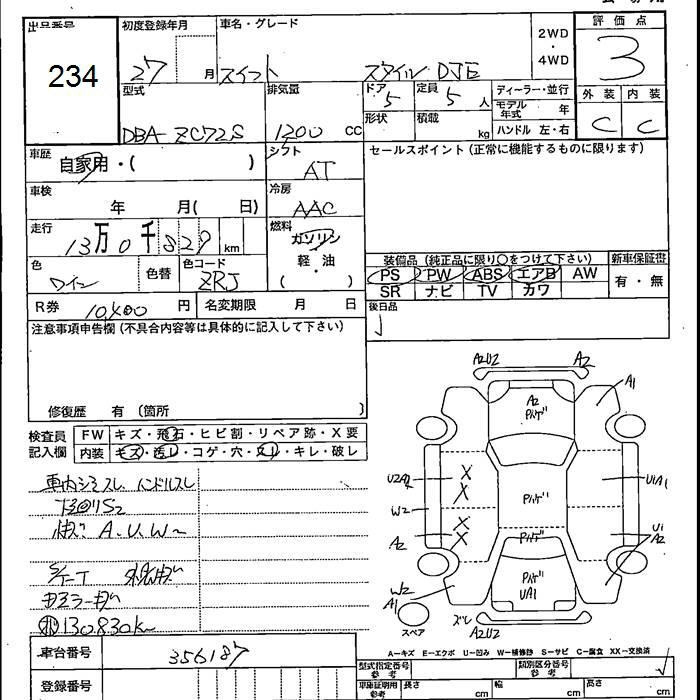 出品番号 初度登録年月 車名・グレード 評価点
234 27 月 スイフト スタイル DJE 2WD・4WD 3
型式 排気量 ドア 5 定員 5 人 ディーラー・並行 外装 内装
DBA-ZC72S 1200 cc 形状 積載 kg モデル年式 年 C C
ハンドル 左・右
車歴 自家用・( ) シフト AT セールスポイント(正常に機能するものに限ります)
車検 年 月( 日) 冷房 AAC
走行 13万0千829 km 燃料 ガソリン 軽・油 ( )
色 ワイン 色替 色コード ZRJ
装備品(純正品に限り○をつけて下さい) 新車保証書
PS PW ABS エアB AW 有・無
SR ナビ TV カワ
R券 10,400 円 名変期限 月 日 後日品
注意事項申告欄(不具合内容等は具体的に記入して下さい)
修復歴 有 (箇所 )
検査員記入欄 FW キズ・飛石・ヒビ割・リペア跡・X要
内装 キズ・汚レ・コゲ・穴・スレ・キレ・破レ
車内シミスレ ハンドルスレ
A.U.W〜
130830k
A2U2 A2
A1
A2
U2A2 X U1A1
X
W2 X U1
A2 X A2
UA1
W2
A1
スペア A2U2
A-キズ E-エクボ U-凹み W-補修跡 S-サビ C-腐食 XX-交換済
車台番号 356187
型式指定番号 参考 類別区分番号 参考
登録番号 車庫証明用 参考 長さ cm 幅 cm 高さ cm